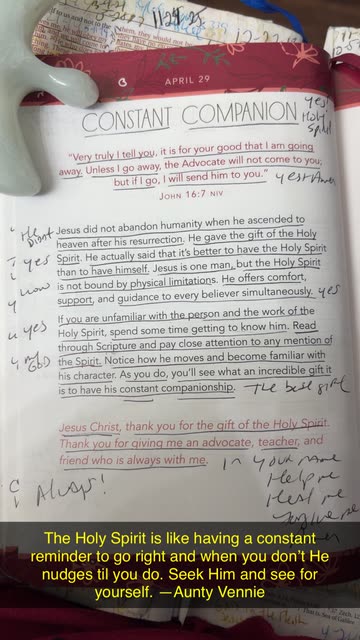 11-24-25
APRIL 29
CONSTANT COMPANION
yes
Holy
Spirit
"Very truly I tell you, it is for your good that I am going
away. Unless I go away, the Advocate will not come to you;
but if I go, I will send him to you."
JOHN 16:7 NIV
He
Didn't
yes
yes
my
GOD
Jesus did not abandon humanity when he ascended to
heaven after his resurrection. He gave the gift of the Holy
Spirit. He actually said that it's better to have the Holy Spirit
than to have himself. Jesus is one man, but the Holy Spirit
is not bound by physical limitations. He offers comfort,
support, and guidance to every believer simultaneously. yes
If you are unfamiliar with the person and the work of the
Holy Spirit, spend some time getting to know him. Read
through Scripture and pay close attention to any mention of
the Spirit. Notice how he moves and become familiar with
his character. As you do, you'll see what an incredible gift it
is to have his constant companionship. The best gift
Jesus Christ, thank you for the gift of the Holy Spirit.
Thank you for giving me an advocate, teacher, and
friend who is always with me. In your name
Help me
Heal me
Forgive me
Always!
The Holy Spirit is like having a constant
reminder to go right and when you don't He
nudges til you do. Seek Him and see for
yourself. —Aunty Vennie